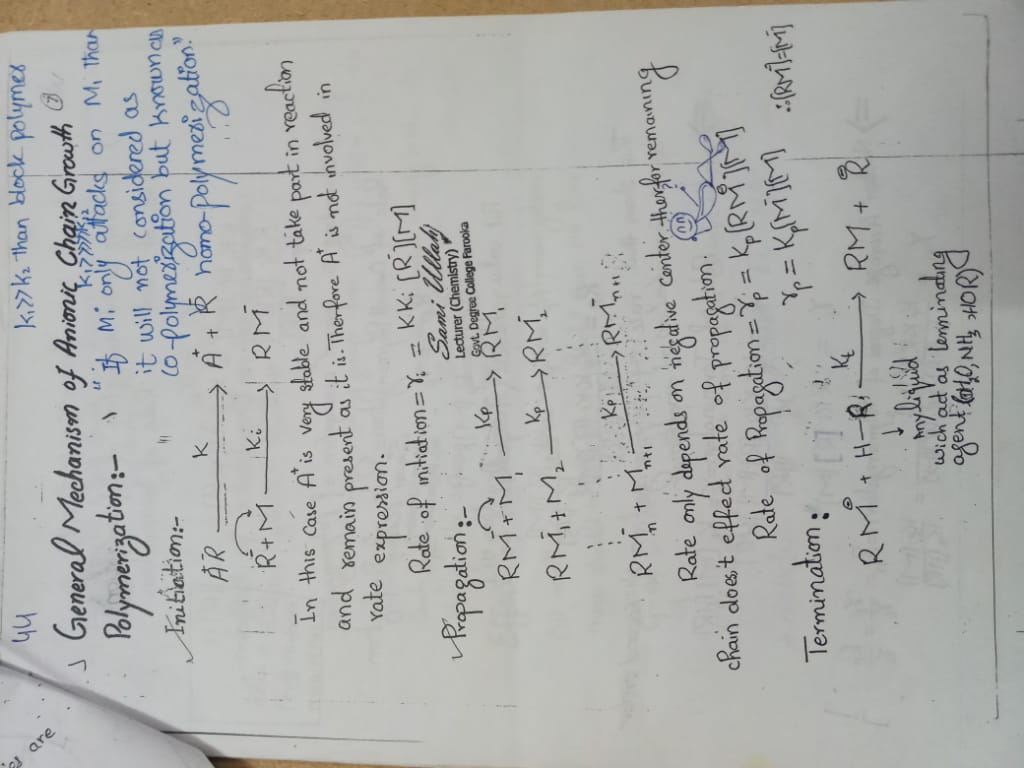 44
K₁>>K₂ than block polymer
General Mechanism of Anionic Chain Growth
K₁>>>>K₂
Polymerization:-
"If M₁ only attacks on M₁ than
it will not considered as
co-polymerization but known as
homo-polymerization."
Initiation:-
A⁺R⁻ —K→ A⁺ + R⁻
R⁻ + M —Ki→ RM⁻
In this case A⁺ is very stable and not take part in reaction
and remain present as it is. Therfore A⁺ is not involved in
rate expression.
Rate of initiation = ri = KKi [R⁻][M]
Sami Ullah
Lecturer (Chemistry)
Govt. Degree College Farooka
Propagation:-
RM⁻ + M₁ —Kp→ RM⁻₁
RM⁻₁ + M₂ —Kp→ RM⁻₂
RM⁻n + Mn+1 —Kp→ RM⁻n+1
Rate only depends on negative center therfor remaining
chain does't effed rate of propagation.
Rate of Propagation = rp = Kp[RM⁻][M]
rp = Kp[M⁻][M] ∴[RM⁻]=[M⁻]
Termination:
RM⁻ + H-R₁ —Kt→ RM + R⁻
↓
any liquid
wich act as terminating
agent (H₂O, NH₃, HOR)